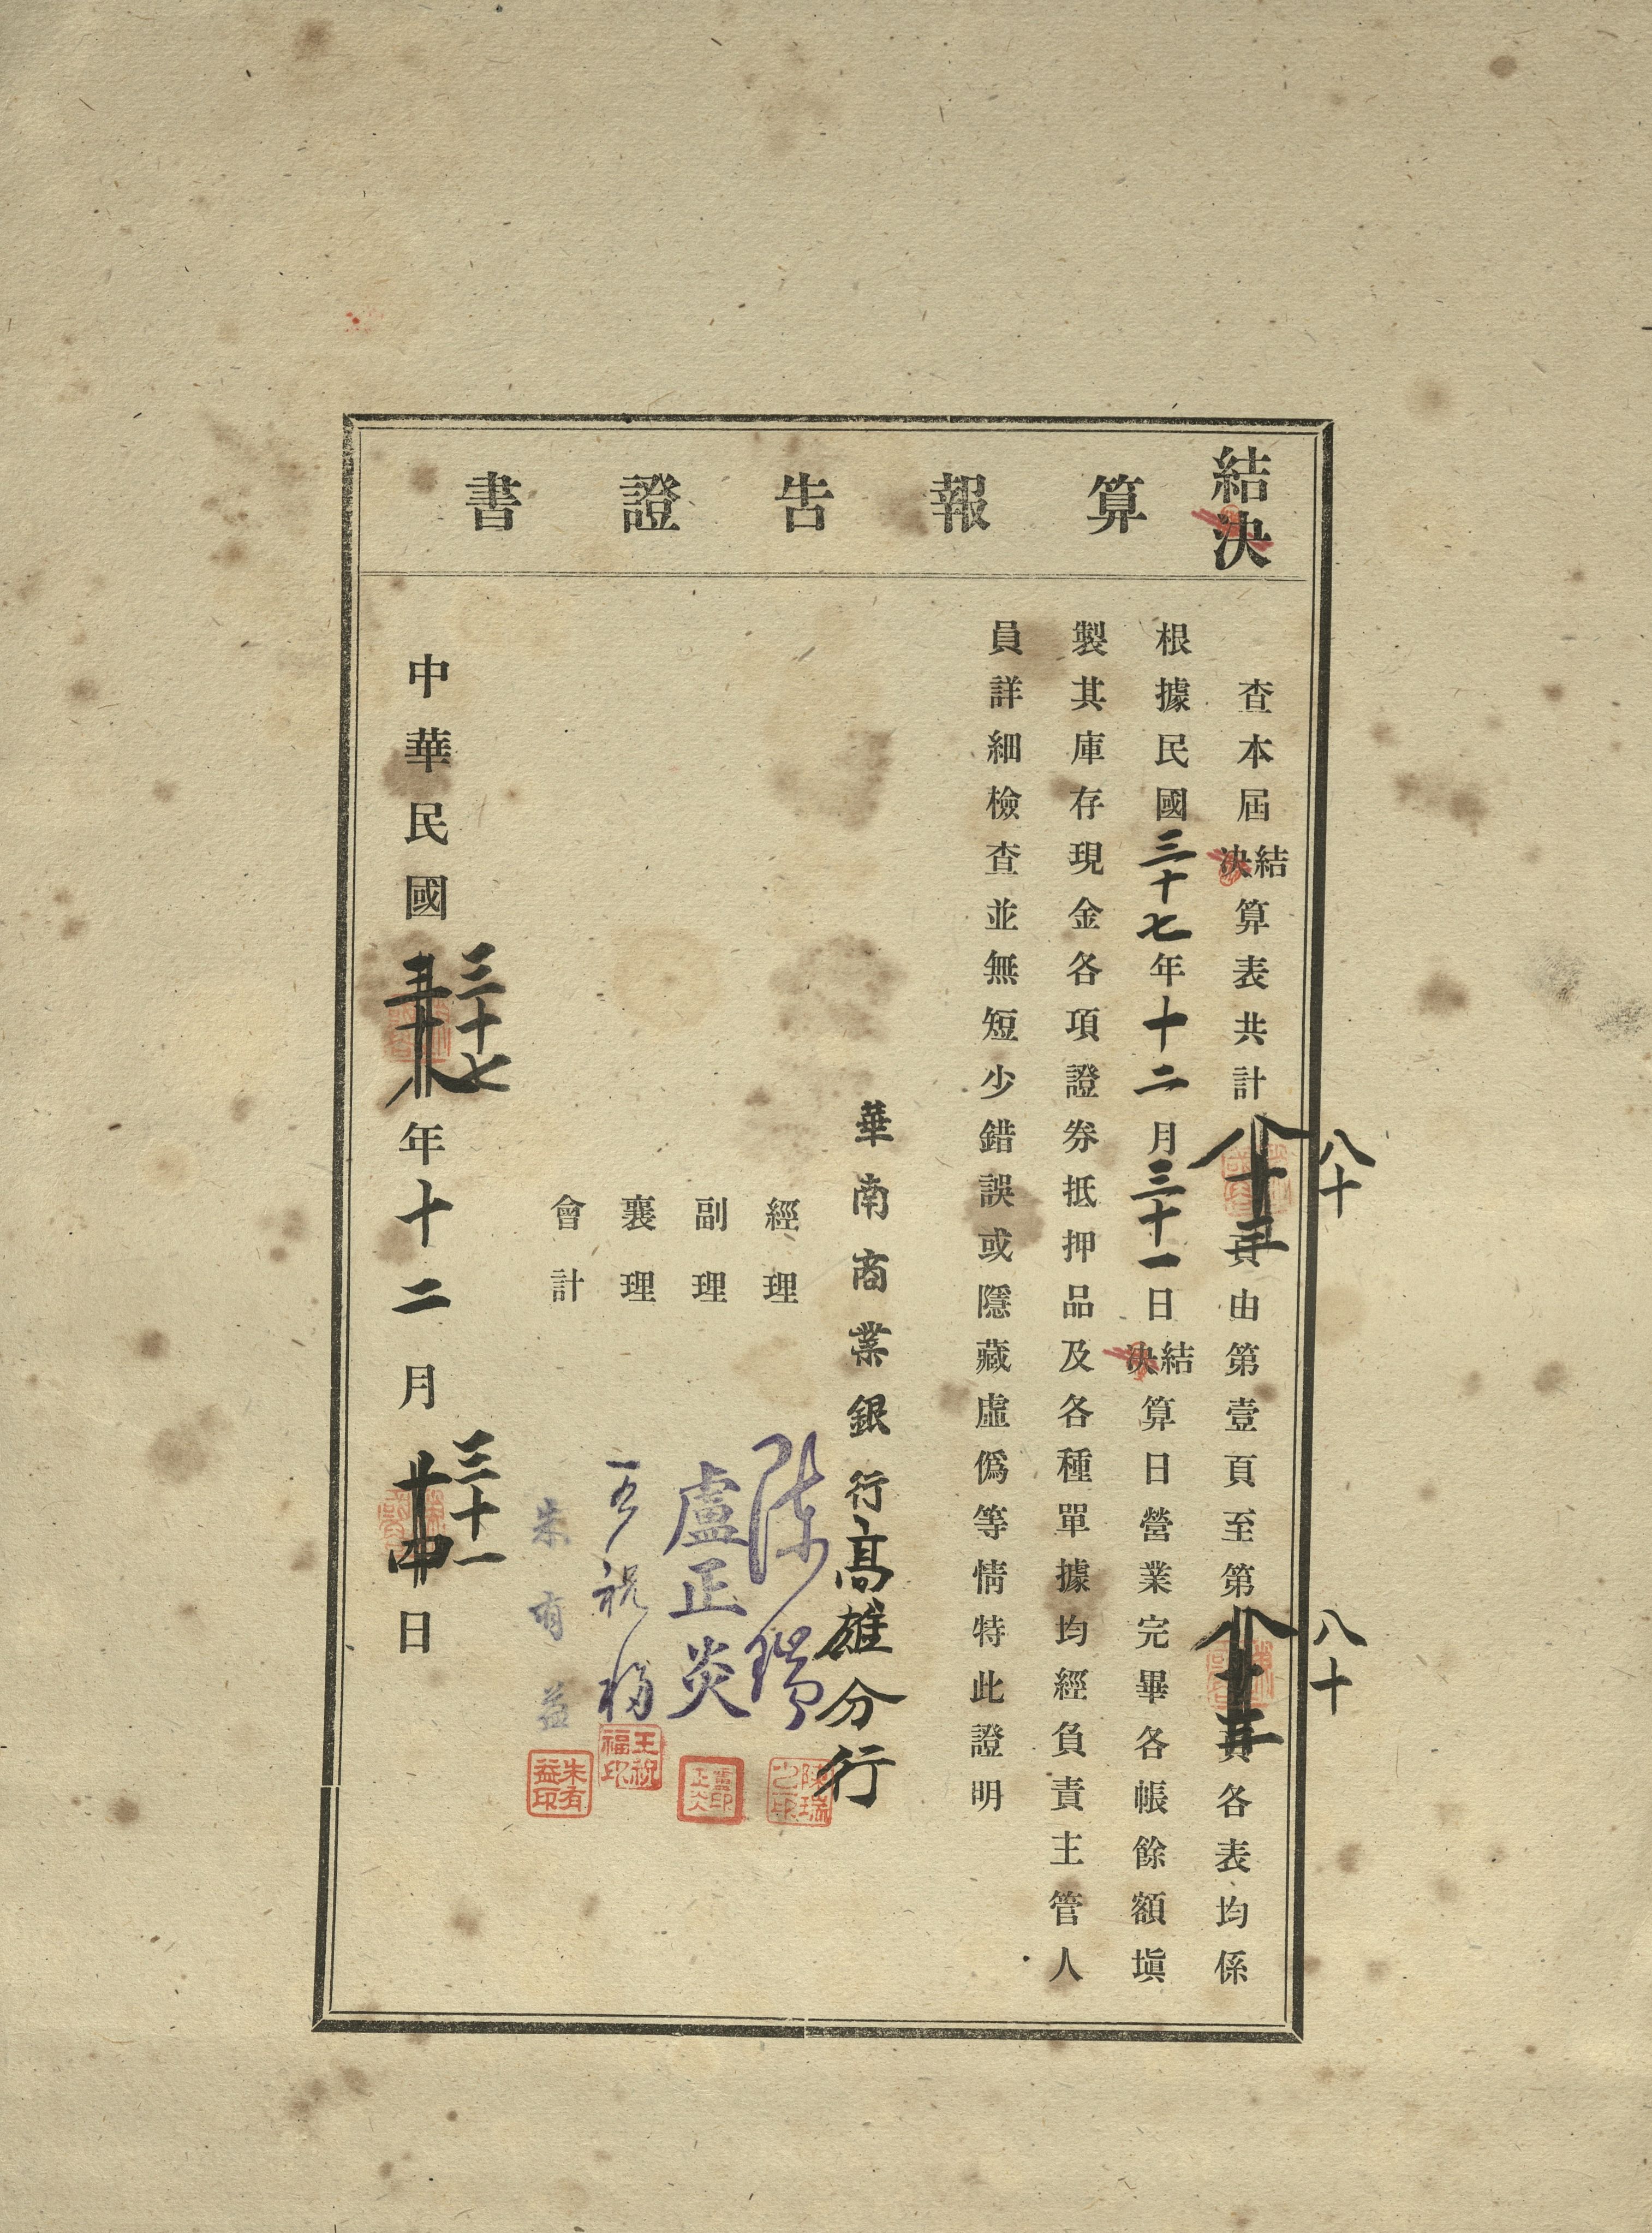 結決算報告證書
查本屆結決算表共計八十頁由第壹頁至第八十頁各表均係
根據民國三十七年十二月三十一日結決算日營業完畢各帳餘額塡
製其庫存現金各項證券抵押品及各種單據均經負責主管人
員詳細檢查並無短少錯誤或隱藏虛僞等情特此證明
華南商業銀行高雄分行
經理 陳瑞 陳瑞之印
副理 盧正炎 盧正炎印
襄理 王祝福 王祝福印
會計 朱有益 朱有益印
中華民國三十七年十二月三十一日